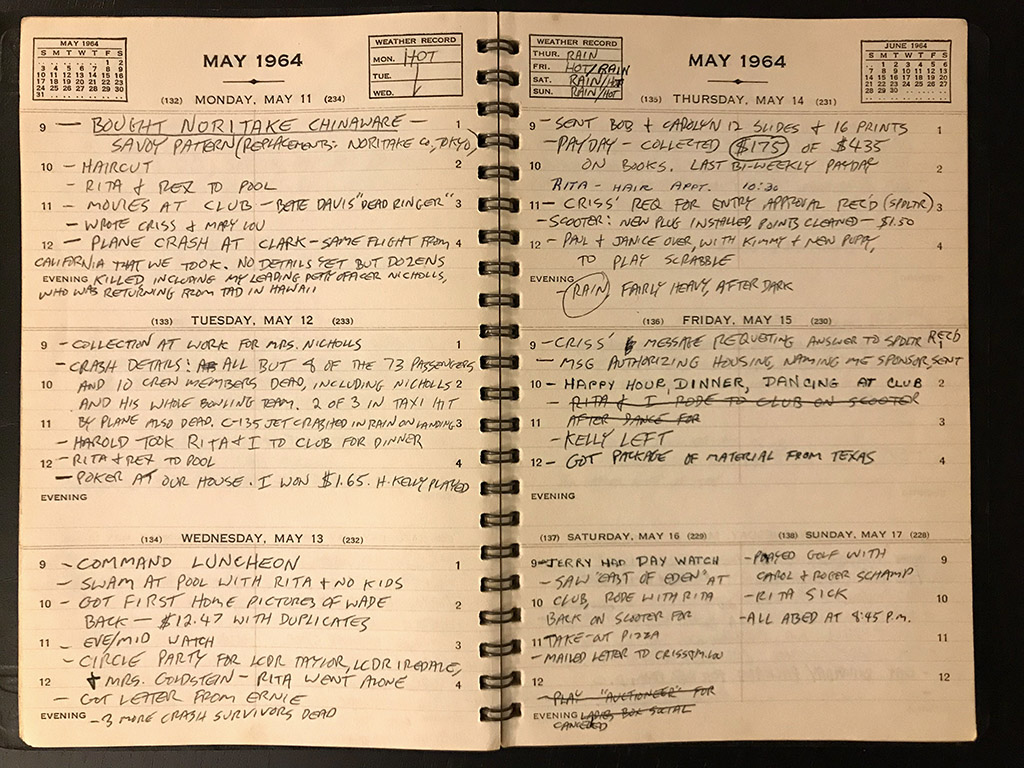 MAY 1964
S M T W T F S
1 2
3 4 5 6 7 8 9
10 11 12 13 14 15 16
17 18 19 20 21 22 23
24 25 26 27 28 29 30
31
MAY 1964
WEATHER RECORD
MON. HOT
TUE.
WED.
(132) MONDAY, MAY 11 (234)
9 — BOUGHT NORITAKE CHINAWARE — 1
SAVOY PATTERN (REPLACEMENTS: NORITAKE CO., TOKYO)
10 - HAIRCUT 2
- RITA & REX TO POOL
11 - MOVIES AT CLUB - BETE DAVIS "DEAD RINGER" 3
- WROTE CRISS & MARY LOU
12 - PLANE CRASH AT CLARK - SAME FLIGHT FROM 4
CALIFORNIA THAT WE TOOK. NO DETAILS YET BUT DOZENS
EVENING KILLED INCLUDING MY LEADING PETTY OFFICER NICHOLLS,
WHO WAS RETURNING FROM TAD IN HAWAII
(133) TUESDAY, MAY 12 (233)
9 - COLLECTION AT WORK FOR MRS. NICHOLLS 1
- CRASH DETAILS: ALL BUT 8 OF THE 73 PASSENGERS
10 AND 10 CREW MEMBERS DEAD, INCLUDING NICHOLLS 2
AND HIS WHOLE BOWLING TEAM. 2 OF 3 IN TAXI HIT
11 BY PLANE ALSO DEAD. C-135 JET CRASHED IN RAIN ON LANDING 3
- HAROLD TOOK RITA & I TO CLUB FOR DINNER
12 - RITA & REX TO POOL 4
- POKER AT OUR HOUSE. I WON $1.65. H. KELLY PLAYED
EVENING
(134) WEDNESDAY, MAY 13 (232)
9 - COMMAND LUNCHEON 1
- SWAM AT POOL WITH RITA & NO KIDS
10 - GOT FIRST HOME PICTURES OF WADE 2
BACK — $12.47 WITH DUPLICATES
11 - EVE/MID WATCH 3
- CIRCLE PARTY FOR LCDR TAYLOR, LCDR IREDALE,
12 & MRS. GOLDSTEIN - RITA WENT ALONE 4
- GOT LETTER FROM ERNIE
EVENING - 3 MORE CRASH SURVIVORS DEAD
WEATHER RECORD
THUR. RAIN
FRI. HOT/RAIN
SAT. RAIN/HOT
SUN. RAIN/HOT
MAY 1964
JUNE 1964
S M T W T F S
1 2 3 4 5 6
7 8 9 10 11 12 13
14 15 16 17 18 19 20
21 22 23 24 25 26 27
28 29 30
(135) THURSDAY, MAY 14 (231)
9 - SENT BOB & CAROLYN 12 SLIDES & 16 PRINTS 1
- PAYDAY - COLLECTED $175 OF $435
10 ON BOOKS. LAST BI-WEEKLY PAYDAY 2
RITA - HAIR APPT. 10:30
11 - CRISS' REQ FOR ENTRY APPROVAL REC'D (SPDLTR) 3
- SCOOTER: NEW PLUG INSTALLED, POINTS CLEANED - $1.50
12 - PAUL & JANICE OVER, WITH KIMMY & NEW PUPPY, 4
TO PLAY SCRABBLE
EVENING
- RAIN, FAIRLY HEAVY, AFTER DARK
(136) FRIDAY, MAY 15 (230)
9 - CRISS' MESSAGE REQUESTING ANSWER TO SPDLTR REC'D 1
- MSG AUTHORIZING HOUSING, NAMING ME SPONSOR, SENT
10 - HAPPY HOUR, DINNER, DANCING AT CLUB 2
- RITA & I RODE TO CLUB ON SCOOTER
11 AFTER DANCE FOR 3
- KELLY LEFT
12 - GOT PACKAGE OF MATERIAL FROM TEXAS 4
EVENING
(137) SATURDAY, MAY 16 (229)
9 - JERRY HAD DAY WATCH
- SAW "EAST OF EDEN" AT
10 CLUB, RODE WITH RITA
BACK ON SCOOTER FOR
11 TAKE-OUT PIZZA
- MAILED LETTER TO CRISS & M. LOU
12
- PLAY "AUCTIONEER" FOR
EVENING LADIES BOX SOCIAL
CANCELED
(138) SUNDAY, MAY 17 (228)
- PLAYED GOLF WITH 9
CAROL & ROGER SCHAMP
- RITA SICK 10
- ALL ABED AT 8:45 P.M.
11
12